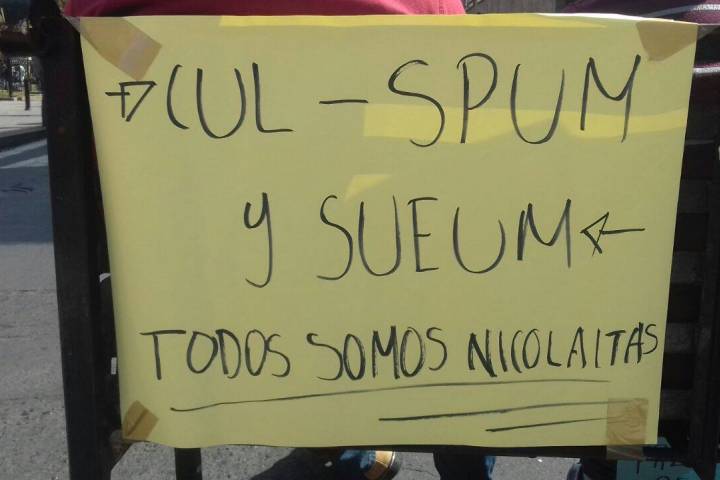 CUL - SPUM
y SUEUM
TODOS SOMOS NICOLAITAS